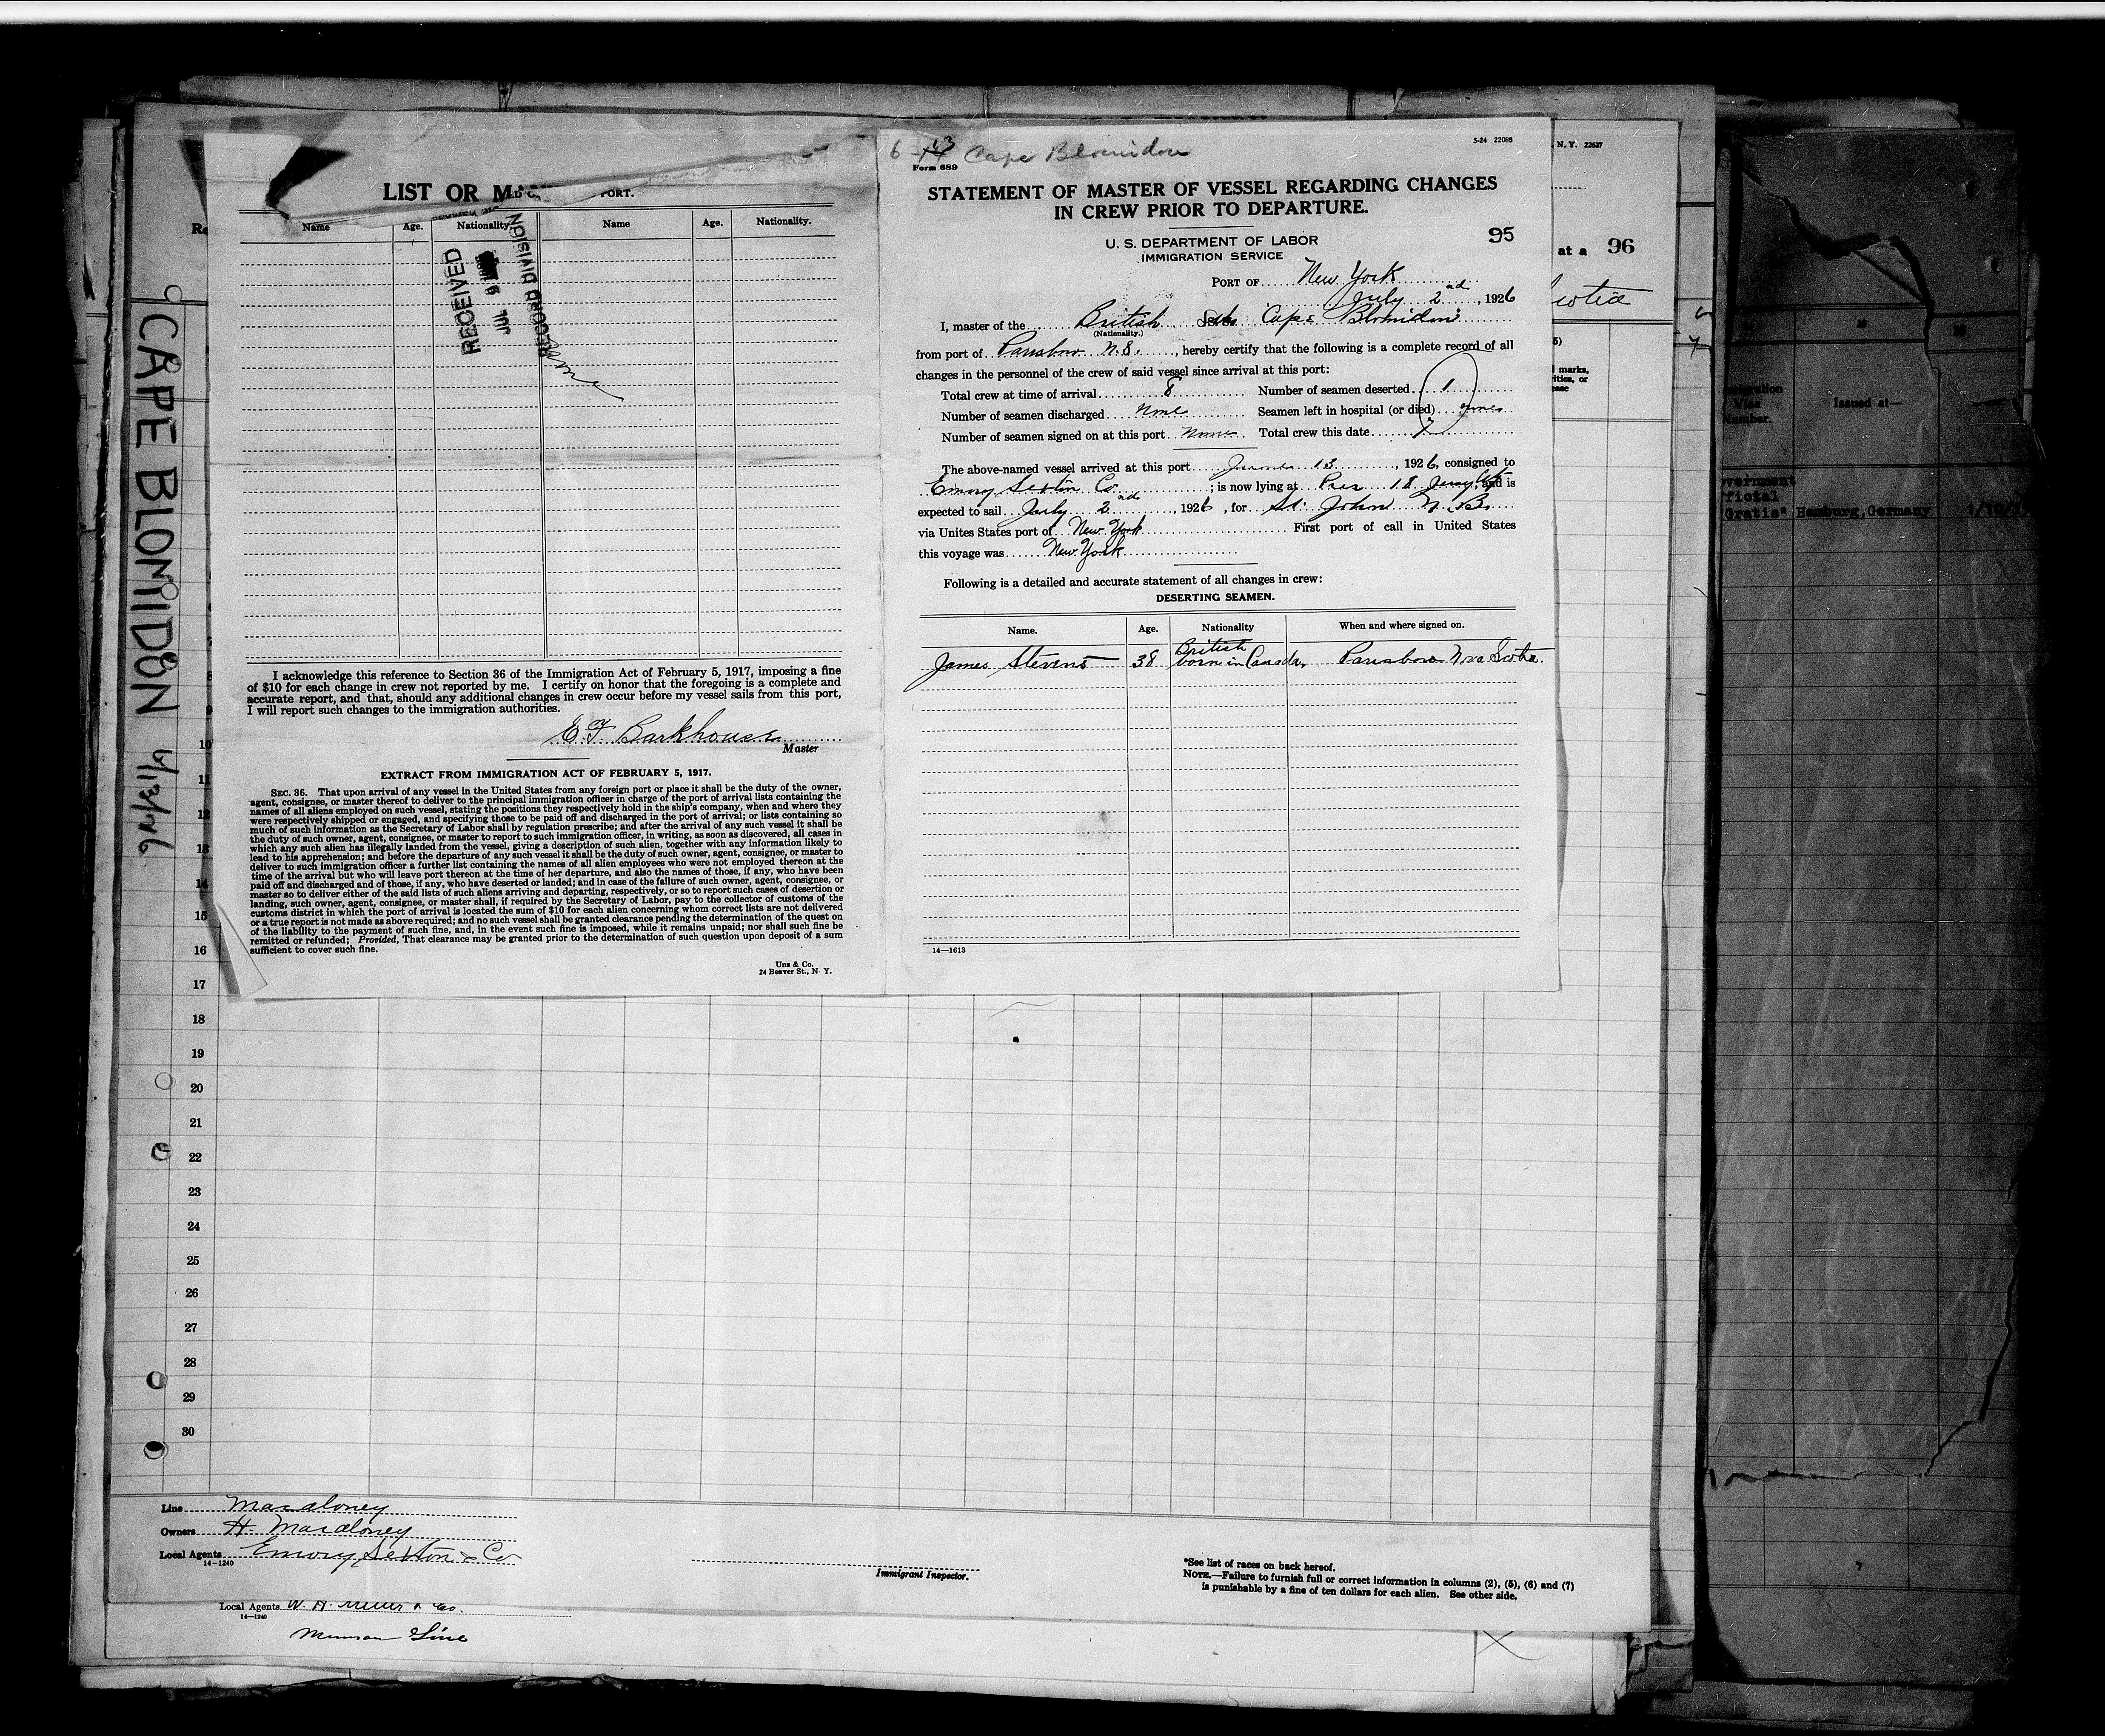 CAPE BLOMIDON 6/13/26
LIST OR
PORT.
Name Age. Nationality. Name Age. Nationality.
RECEIVED
JUL 6 1926
RECORD DIVISION
I acknowledge this reference to Section 36 of the Immigration Act of February 5, 1917, imposing a fine
of $10 for each change in crew not reported by me. I certify on honor that the foregoing is a complete and
accurate report, and that, should any additional changes in crew occur before my vessel sails from this port,
I will report such changes to the immigration authorities.
E. F. Barkhouse
Master
EXTRACT FROM IMMIGRATION ACT OF FEBRUARY 5, 1917.
SEC. 36. That upon arrival of any vessel in the United States from any foreign port or place it shall be the duty of the owner,
agent, consignee, or master thereof to deliver to the principal immigration officer in charge of the port of arrival lists containing the
names of all aliens employed on such vessel, stating the positions they respectively hold in the ship's company, when and where they
were respectively shipped or engaged, and specifying those to be paid off and discharged in the port of arrival; or lists containing so
much of such information as the Secretary of Labor shall by regulation prescribe; and after the arrival of any such vessel it shall be
the duty of such owner, agent, consignee, or master to report to such immigration officer, in writing, as soon as discovered, all cases in
which any such alien has illegally landed from the vessel, giving a description of such alien, together with any information likely to
lead to his apprehension; and before the departure of any such vessel it shall be the duty of such owner, agent, consignee, or master to
deliver to such immigration officer a further list containing the names of all alien employees who were not employed thereon at the
time of the arrival but who will leave port thereon at the time of her departure, and also the names of those, if any, who have been
paid off and discharged and of those, if any, who have deserted or landed; and in case of the failure of such owner, agent, consignee, or
master so to deliver either of the said lists of such aliens arriving and departing, respectively, or so to report such cases of desertion or
landing, such owner, agent, consignee, or master shall, if required by the Secretary of Labor, pay to the collector of customs of the
customs district in which the port of arrival is located the sum of $10 for each alien concerning whom correct lists are not delivered
or a true report is not made as above required; and no such vessel shall be granted clearance pending the determination of the quest on
of the liability to the payment of such fine, and, in the event such fine is imposed, while it remains unpaid; nor shall such fine be
remitted or refunded; Provided, That clearance may be granted prior to the determination of such question upon deposit of a sum
sufficient to cover such fine.
Unz & Co.
24 Beaver St., N. Y.
6-13 Cape Blomidon
5-24 22086
Form 689
STATEMENT OF MASTER OF VESSEL REGARDING CHANGES
IN CREW PRIOR TO DEPARTURE.
U. S. DEPARTMENT OF LABOR
IMMIGRATION SERVICE
95
PORT OF New York
July 2nd, 1926
I, master of the British Sch. Cape Blomidon
(Nationality.)
from port of Parrsboro N.S., hereby certify that the following is a complete record of all
changes in the personnel of the crew of said vessel since arrival at this port:
Total crew at time of arrival 8 Number of seamen deserted 1
Number of seamen discharged None Seamen left in hospital (or died) None
Number of seamen signed on at this port None Total crew this date 7
The above-named vessel arrived at this port June 13, 1926, consigned to
Emory Sexton Co; is now lying at Pier 18 Jersey City, and is
expected to sail July 2nd, 1926, for St. John N.B.
via Unites States port of New York First port of call in United States
this voyage was New York
Following is a detailed and accurate statement of all changes in crew:
DESERTING SEAMEN.
Name. Age. Nationality When and where signed on.
James Stevens 38 British born in Canada Parrsboro Nova Scotia.
14—1613
N. Y. 22627
at a 96
Scotia
marks,
Visa
Number.
Issued at—
Government
Official
"Gratis" Hamburg, Germany
10
11
12
13
14
15
16
17
18
19
20
21
22
23
24
25
26
27
28
29
30
Line Macaloney
Owners H. Macaloney
Local Agents Emory Sexton & Co
14—1240
Immigrant Inspector.
*See list of races on back hereof.
NOTE.—Failure to furnish full or correct information in columns (2), (5), (6) and (7)
is punishable by a fine of ten dollars for each alien. See other side.
Local Agents
14—1240
Munson Line